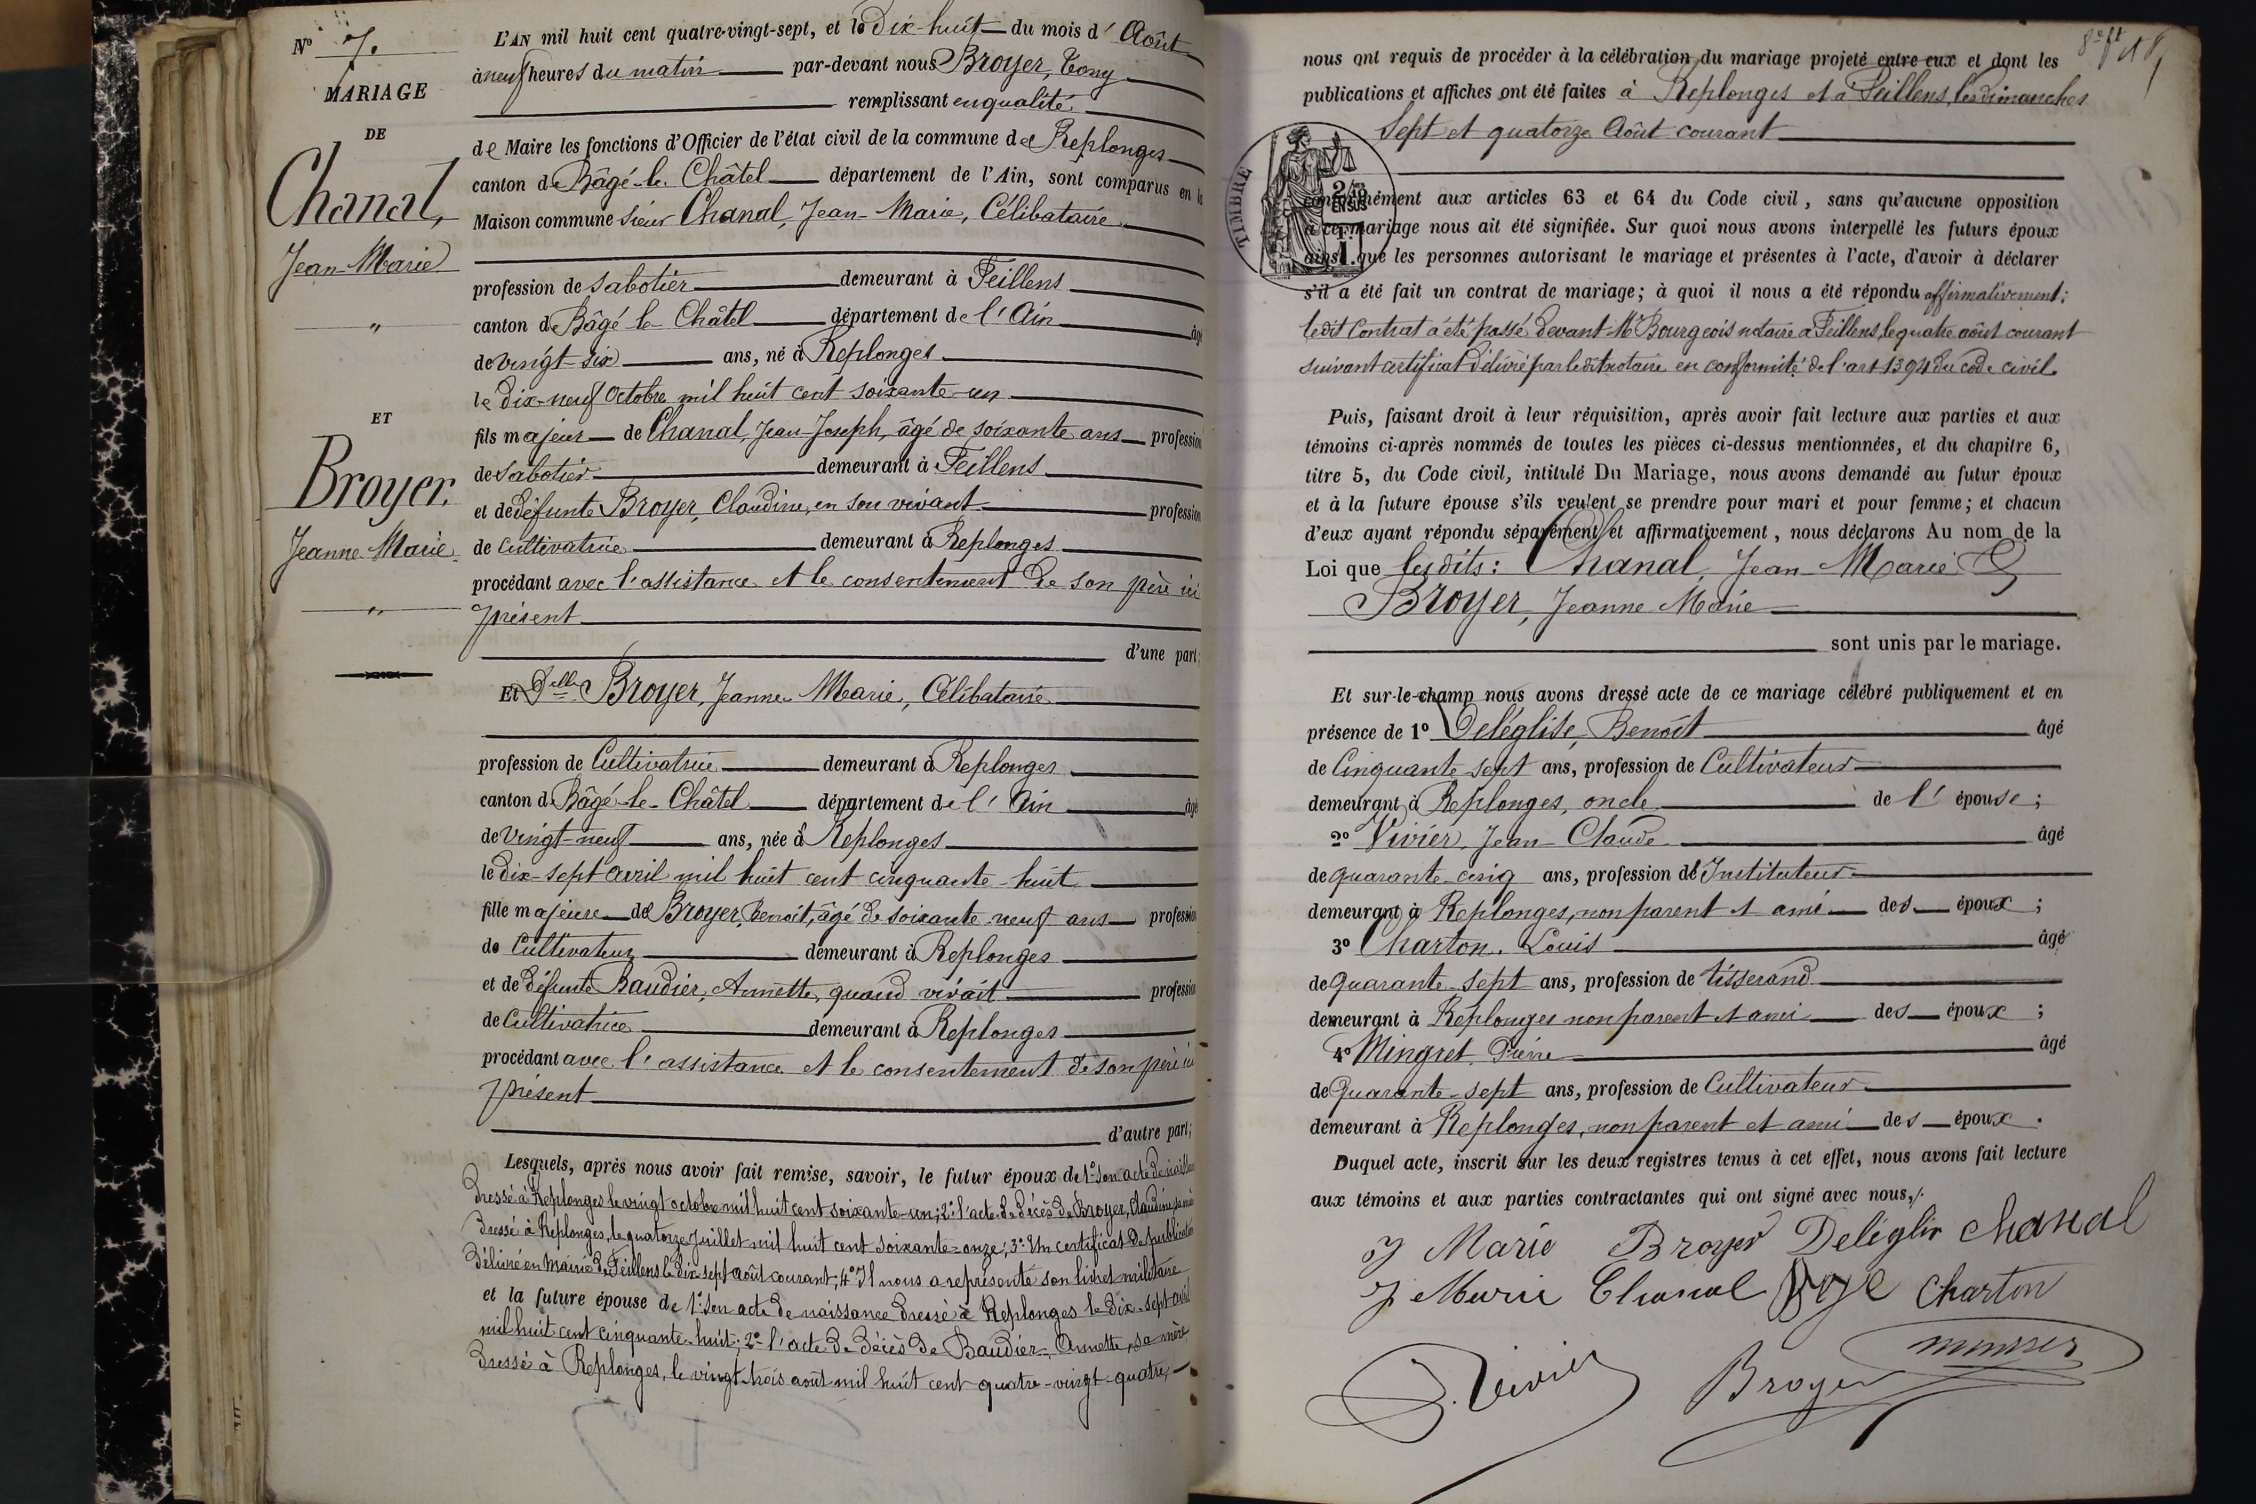 N° 7.
MARIAGE
DE
Chanal,
Jean-Marie
"
ET
Broyer.
Jeanne Marie.
"
L'AN mil huit cent quatre-vingt-sept, et le Dix-huit du mois d' Août
à neuf heures du matin par-devant nous Broyer, Tony
remplissant en qualité
de Maire les fonctions d'Officier de l'état civil de la commune de Replonges
canton de Bâgé-le-Châtel département de l'Ain, sont comparus en la
Maison commune sieur Chanal, Jean-Marie, Célibataire
profession de Sabotier demeurant à Feillens
canton de Bâgé le Châtel département de l'Ain âgé
de vingt-six ans, né à Replonges
le Dix-neuf Octobre mil huit cent soixante-un
fils majeur de Chanal, Jean-Joseph, âgé de soixante ans profession
de Sabotier demeurant à Feillens
et de défunte Broyer, Claudine, en son vivant profession
de Cultivatrice demeurant à Replonges
procédant avec l'assistance et le consentement de son père ici
présent
d'une part;
Et Delle Broyer, Jeanne-Marie, Célibataire
profession de Cultivatrice demeurant à Replonges
canton de Bâgé-le-Châtel département de l'Ain âgée
de vingt-neuf ans, née à Replonges
le Dix-sept avril mil huit cent cinquante-huit
fille majeure de Broyer, Benoit, âgé de soixante neuf ans profession
de Cultivateur demeurant à Replonges
et de défunte Baudier, Annette, quand vivait profession
de Cultivatrice demeurant à Replonges
procédant avec l'assistance et le consentement de son père ici
présent
d'autre part;
Lesquels, après nous avoir fait remise, savoir, le futur époux de 1° son acte de naissance
dressé à Replonges le vingt octobre mil huit cent soixante-un; 2° l'acte de décès de Broyer, Claudine, sa mère
dressé à Replonges, le quatorze Juillet mil huit cent soixante-onze; 3° Un certificat de publication
délivré en Mairie de Feillens le dix sept août courant; 4° Il nous a représenté son livret militaire
et la future épouse de 1° son acte de naissance dressé à Replonges le dix-sept avril
mil huit cent cinquante-huit; 2° l'acte de décès de Baudier, Annette, sa mère
dressé à Replonges, le vingt-trois août mil huit cent quatre-vingt-quatre,
nous ont requis de procéder à la célébration du mariage projeté entre eux et dont les
publications et affiches ont été faites à Replonges et à Feillens, les dimanches
Sept et quatorze Août courant
TIMBRE
2/10
EN SUS
conformément aux articles 63 et 64 du Code civil, sans qu'aucune opposition
à ce mariage nous ait été signifiée. Sur quoi nous avons interpellé les futurs époux
ainsi que les personnes autorisant le mariage et présentes à l'acte, d'avoir à déclarer
s'il a été fait un contrat de mariage; à quoi il nous a été répondu affirmativement;
ledit Contrat a été passé devant Me Bourgeois notaire à Feillens, le quatre août courant
suivant certificat délivré par ledit notaire en conformité de l'art 1394 du code civil.
Puis, faisant droit à leur réquisition, après avoir fait lecture aux parties et aux
témoins ci-après nommés de toutes les pièces ci-dessus mentionnées, et du chapitre 6,
titre 5, du Code civil, intitulé Du Mariage, nous avons demandé au futur époux
et à la future épouse s'ils veulent se prendre pour mari et pour femme; et chacun
d'eux ayant répondu séparément et affirmativement, nous déclarons Au nom de la
Loi que lesdits: Chanal, Jean-Marie &
Broyer, Jeanne Marie
sont unis par le mariage.
Et sur-le-champ nous avons dressé acte de ce mariage célébré publiquement et en
présence de 1° Deléglise, Benoît âgé
de Cinquante sept ans, profession de Cultivateur
demeurant à Replonges, oncle de l' épouse;
2° Vivier, Jean-Claude âgé
de quarante-cinq ans, profession d'Instituteur
demeurant à Replonges, non parent et ami des époux;
3° Charton, Louis âgé
de Quarante-sept ans, profession de tisserand
demeurant à Replonges non parent et ami des époux;
4° Mingret, Pierre âgé
de Quarante-sept ans, profession de Cultivateur
demeurant à Replonges, non parent et ami des époux.
Duquel acte, inscrit sur les deux registres tenus à cet effet, nous avons fait lecture
aux témoins et aux parties contractantes qui ont signé avec nous,
J Marie Broyer Déliglis Chanal
J Marie Chanal Charton
Vivier Broyer